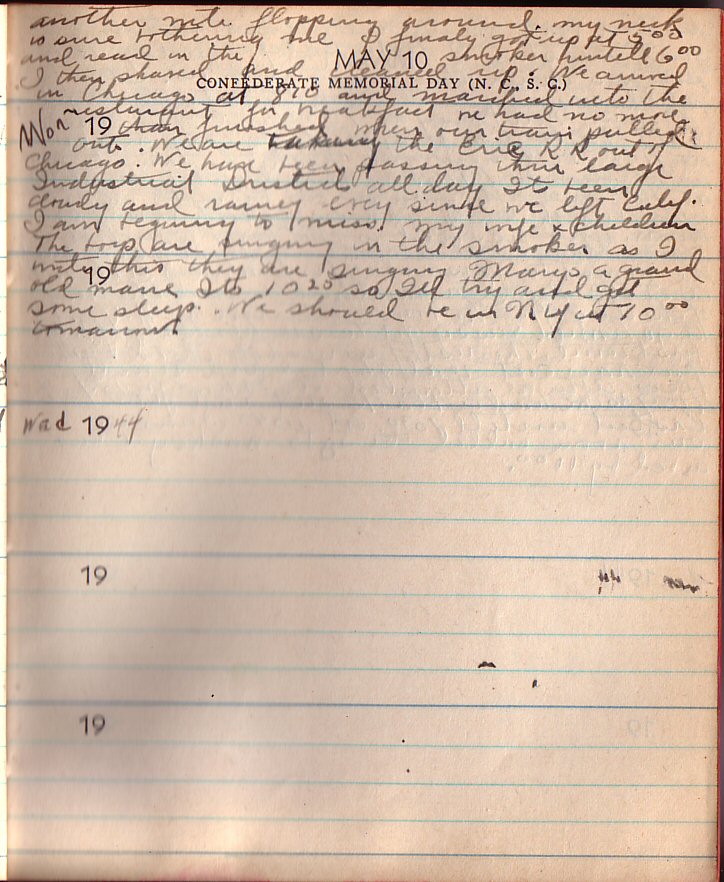 another nite flopping around. my neck
is sure bothering me I finaly got up at 5 00
and read in the smoker untill 6 00
MAY 10
I then shaved and cleaned up. We arrived
CONFEDERATE MEMORIAL DAY (N. C., S. C.)
in Chicago at 8 10 and marched into the
restaurant for breakfast we had no more
Mon 19 than finished when our train pulled
out. We are taking the Erie RR out of
Chicago. We have been passing thru large
Industrial District all day Its been
cloudy and rainey every since we left Calif.
I am begining to miss my wife & children
The boys are singing in the smoker as I
write this they are singing Marys a grand
19
old name Its 10 20 so Ill try and get
some sleep. We should be in N Y at 10 00
tomarrow.
Wed 1944
19
19